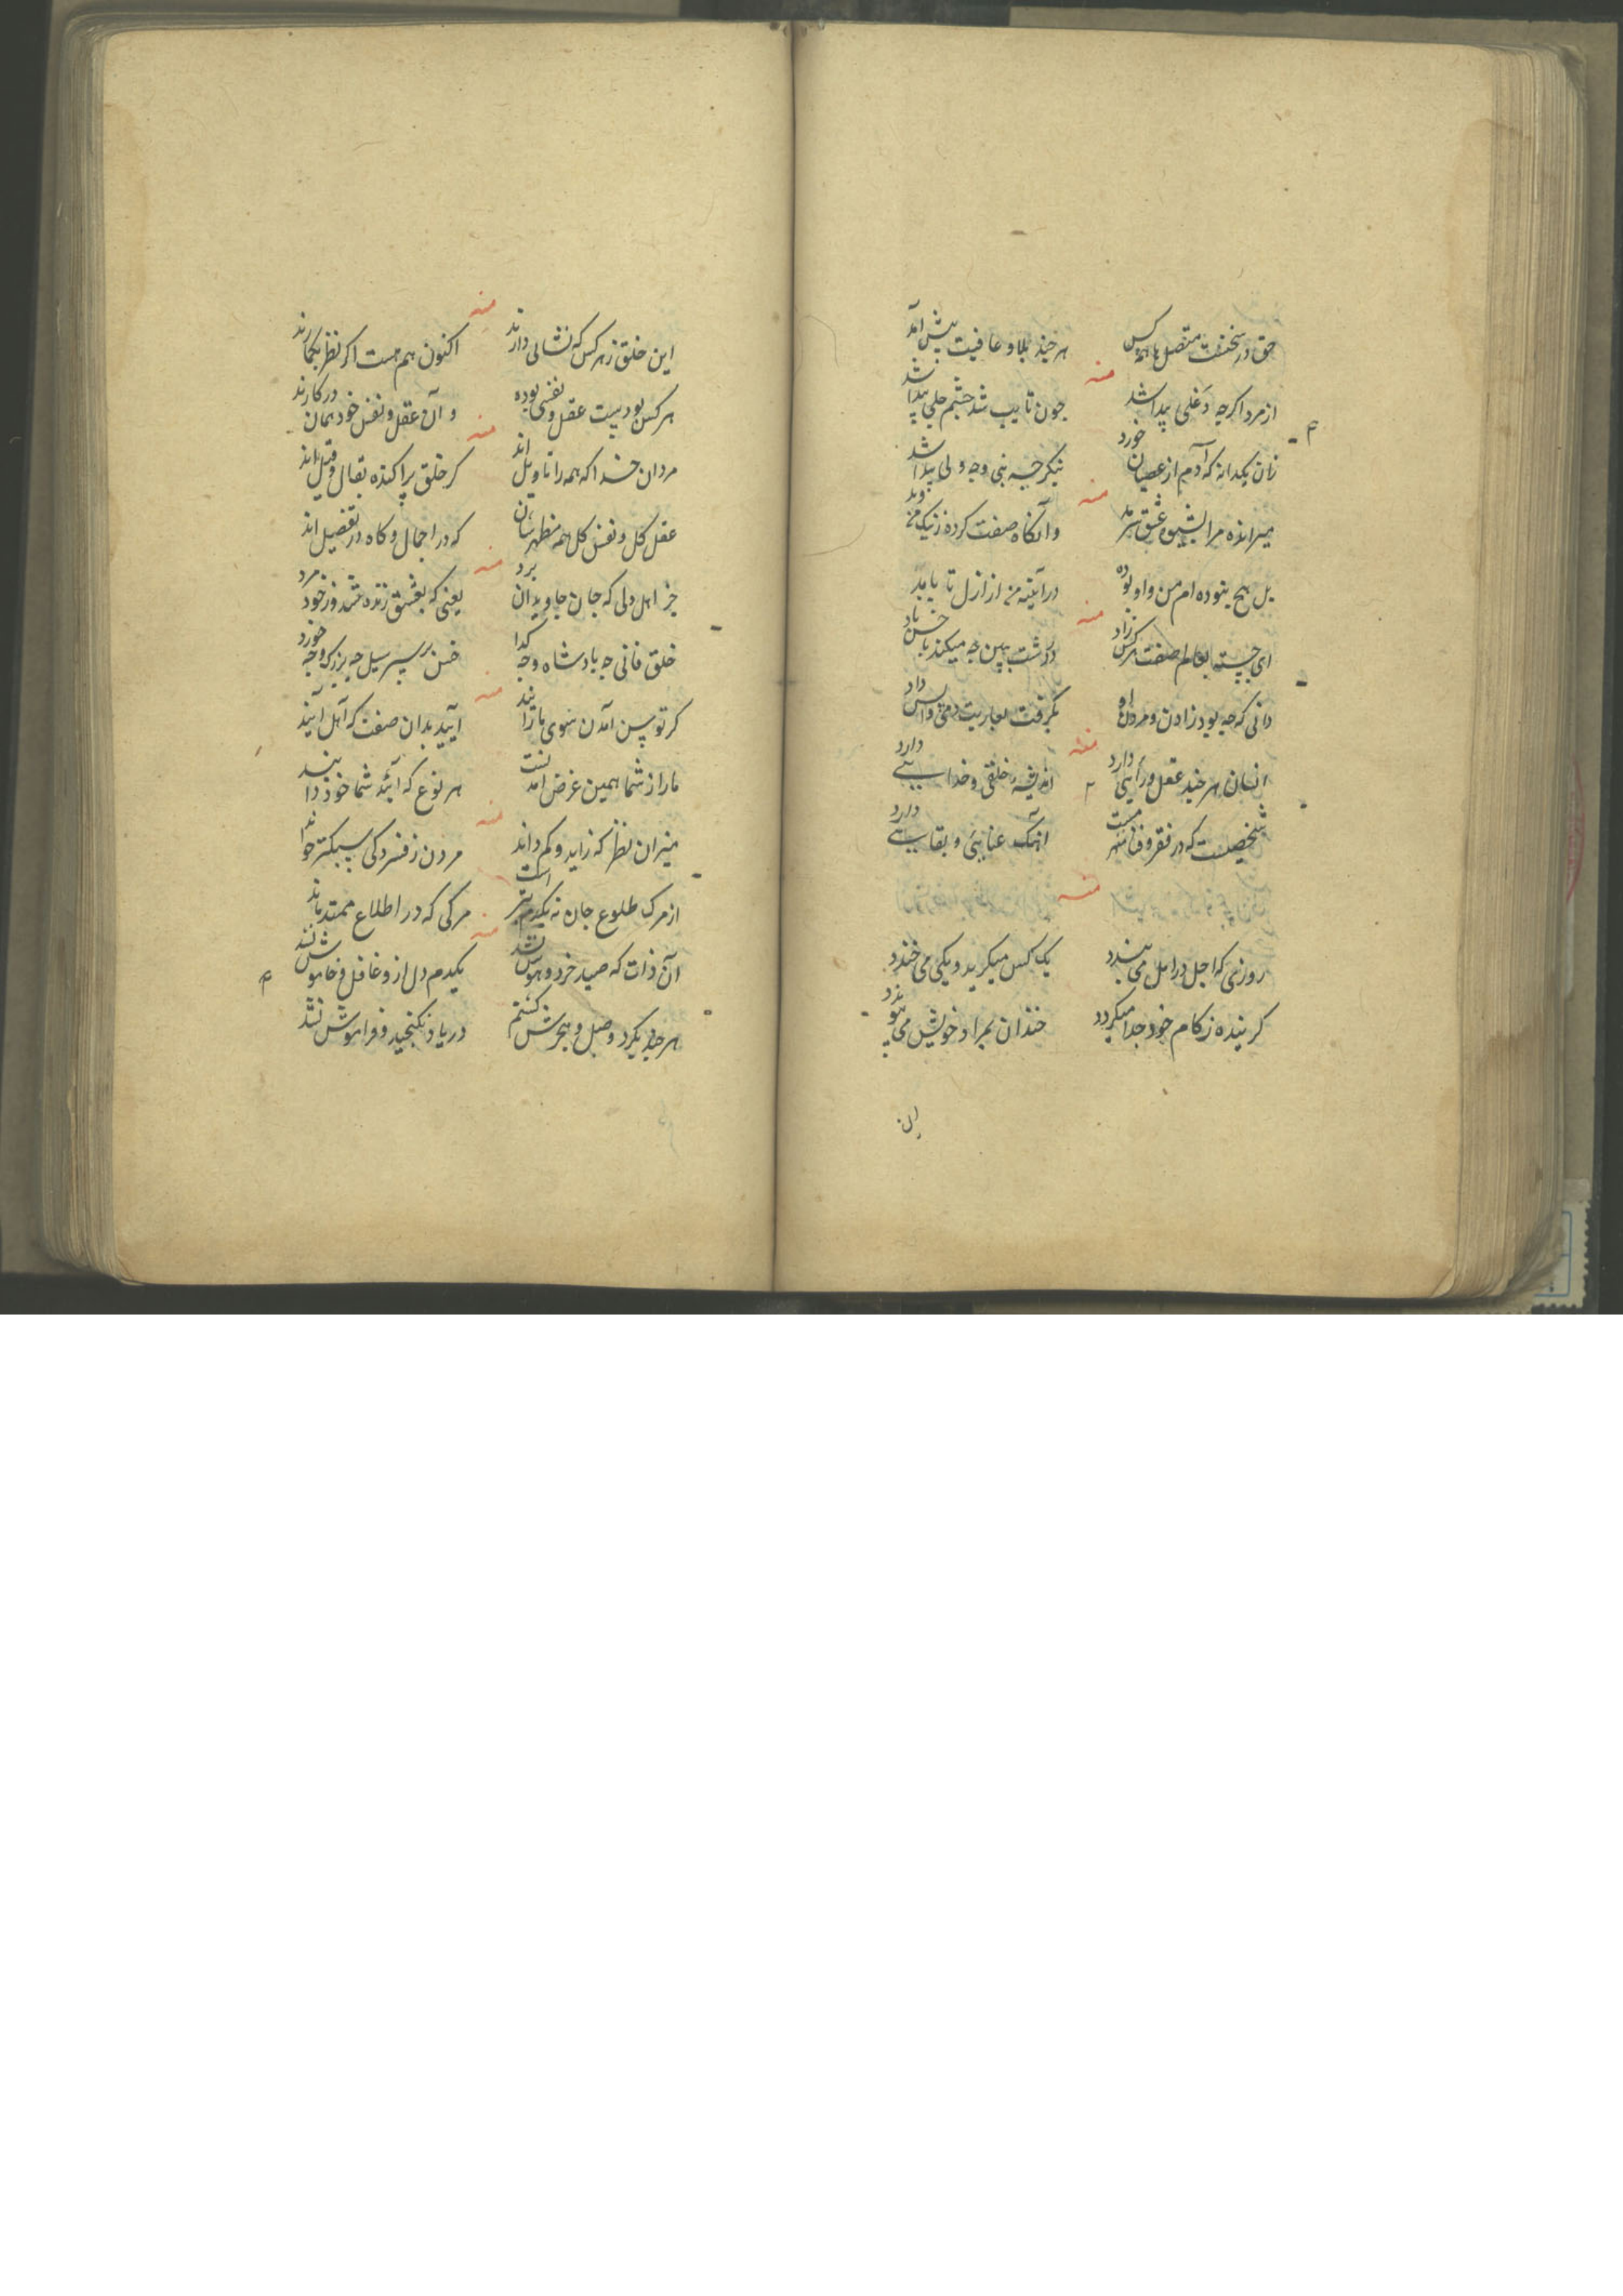 حق در سخنست متصل با همه کس
هر چند بلا و عافیت پیش آمد
منه
از مرد اگرچه دغلی پیدا شد
چون تایب شد چشم جلی پیدا شد
زان یکدانه که آدم از عصیان خورد
بنکر چه نبی و چه ولی پیدا شد
منه
وانکاه صفت کرده ز نیک و بد
بل هیچ نبوده ام من و او بوده
در آینه من از ازل تا بابد
منه
ای چیست بعالم صفت هر کس زاد
دانی که چه بود زادن و مردن او
بکرفت بعاریت دمی واپس داد
منه
انسان هر چند عقل و رایی دارد
اندیشه خلقی و خدایی دارد
شخصیست که در فقر و فنا
آهنک عنایی و بقایی دارد
منه
روزی که اجل در امل می بندد
یک کس میکرید و یکی می خندد
کرینده ز کام خود جدا میکردد
خندان بمراد خویش می پیوندد
این
منه
این خلق ز هر کس که نشانی دارند
اکنون هم هست اکر نظر بکمارند
هر کس بودست عقل و نفسی بوده
و آن عقل و نفس خود همان در کارند
منه
مردان خدا که همه را تاویل اند
کر خلق پراکنده بقال و قیل اند
عقل کل و نفس کل همه مظهرشان
که در اجمال و کاه در تفصیل اند
منه
جز اهل دلی که جان جاویدان برد
یعنی که بعشق زنده شد وز خود مرد
خلق فانی چه بادشاه و چه کدا
خس بر سر سیل چه بزرک و چه خورد
منه
کر تو پس آمدن سوی ما
آیید بدان صفت که اهل آیند
ما را ز شما همین غرض آمد
هر نوع که آیید شما خود دا
منه
میزان نظر که زاید و کم داند
مردن ز فسردکی سبکتر خواند
از مرک طلوع جان نه یکدم بیش است
مرکی که در اطلاع ممتد ماند
منه
آن ذات که صید خرد و هوش نشد
یکدم دل ازو غافل و خاموش نشد
هر چند بکرد وصل و هجرش کشتم
در یاد نکنجید و فراموش نشد